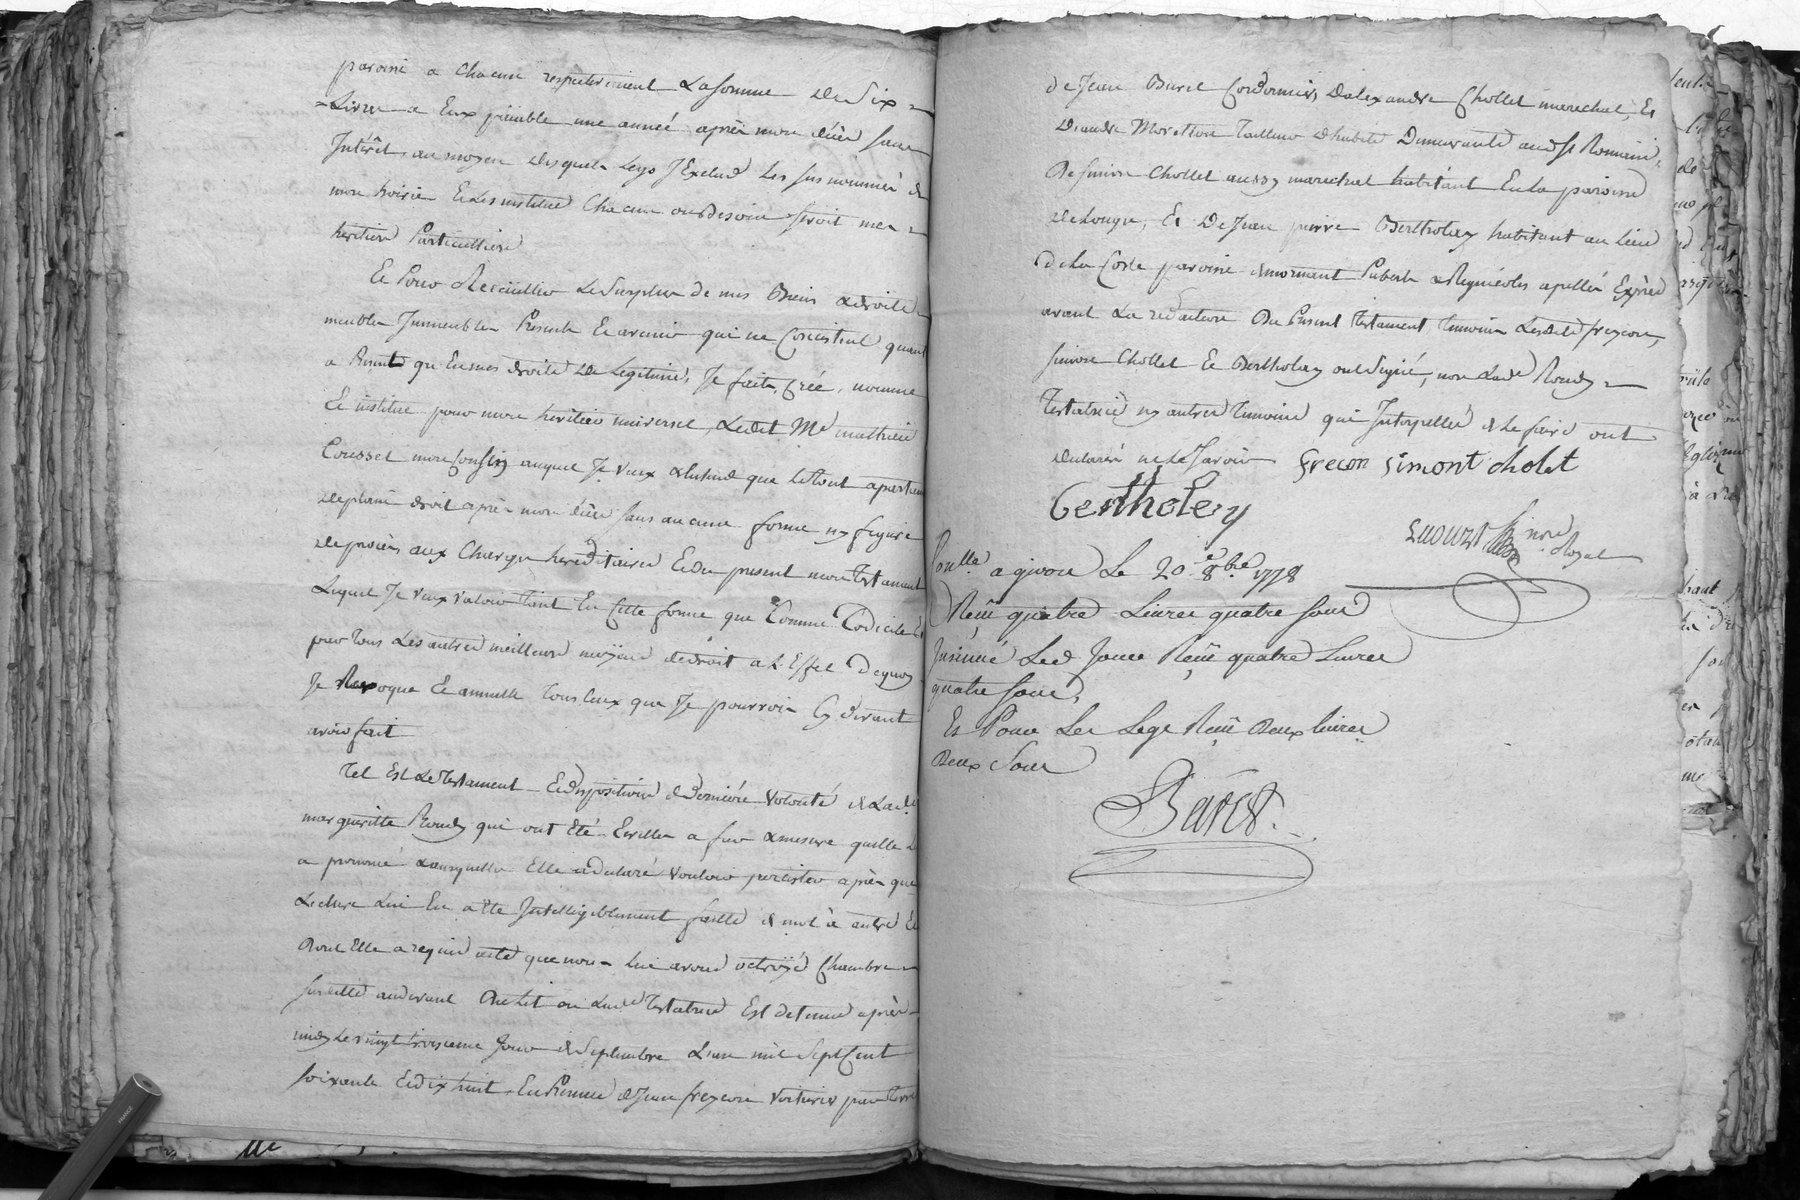 paroisse a chacun respectivement La somme de Six
Livres a Eux paiable une année après mon décès sans
Intérêt, au moyen desquels Legs J'Exclud Les susnommés de
mon hoirie Et Les institue chacun en droit soi mes
heritiers Particulliers
Et Pour Recueillir Le Surplus de mes Biens & droits
meubles Immeubles Presents Et avenir qui ne Consistent quant
a Present qu'En mes droits de Legitimes, Je fais, Créé, nomme
Et institue pour mon heritier universel, Ledit Me mathieu
Cousset mon Cousin auquel Je veux & Entend que Le tout apartienne
de plain droit après mon décès sans aucune forme ny figure
de procès aux Charges hereditaires Et du present mon testament
Lequel Je veux valoir tant En Cette forme que Comme Codicile Et
par tous Les autres meilleurs moyens de droit a L'Effet de quoy
Je Revoque Et annulle tous Ceux que Je pourrois Cy devant
avoir fait
Tel Est Le Testament Et disposition de derniére volonté de Lade
margueritte Rondy qui ont Eté Ecrittes a fur & mesure quelle Les
a prononcé & auxquelles Elle a declaré vouloir persister après que
Lecture Lui En a Eté Intelligiblement faitte de mot à autre Et
dont Elle a requis acte que nous Lui avons octroyé Chambre
susditte audevant du Lit ou Lade Testatrice Est detenue après
midy Le vingt troisieme Jour de Septembre L'an mil Sept Cent
soixante Et dix huit, En Présence de Jean freycon voiturier par terre
de Jean Burel Cordonnier, d'alexandre Chollet marechal, Et
D'andré Moretton Tailleur d'habits Demeurants aud St Romain,
De simon Chollet aussy marechal habitant En la paroisse
de Longes, Et De Jean pierre Bertholay habitant au lieu
de La Coste paroisse de mornant Puberts & Regnicoles apellés Exprès
avant La redaction Du Present testament, temoins Lesdits freycon,
simon Chollet Et Bertholay ont Signé, non Lade Rondy
Testatrice ny autres temoins qui Interpellés de Le faire ont
declarés ne Le savoir frecon simont cholet
Bertholey
not Royal
Conlle a givors Le 20e 8bre 1778
Reçu quatre Livres quatre sous
Insinué Led Jour Reçu quatre Livres
quatre sous,
Et Pour Les Legs Reçu deux livres
Deux Sous
Baret